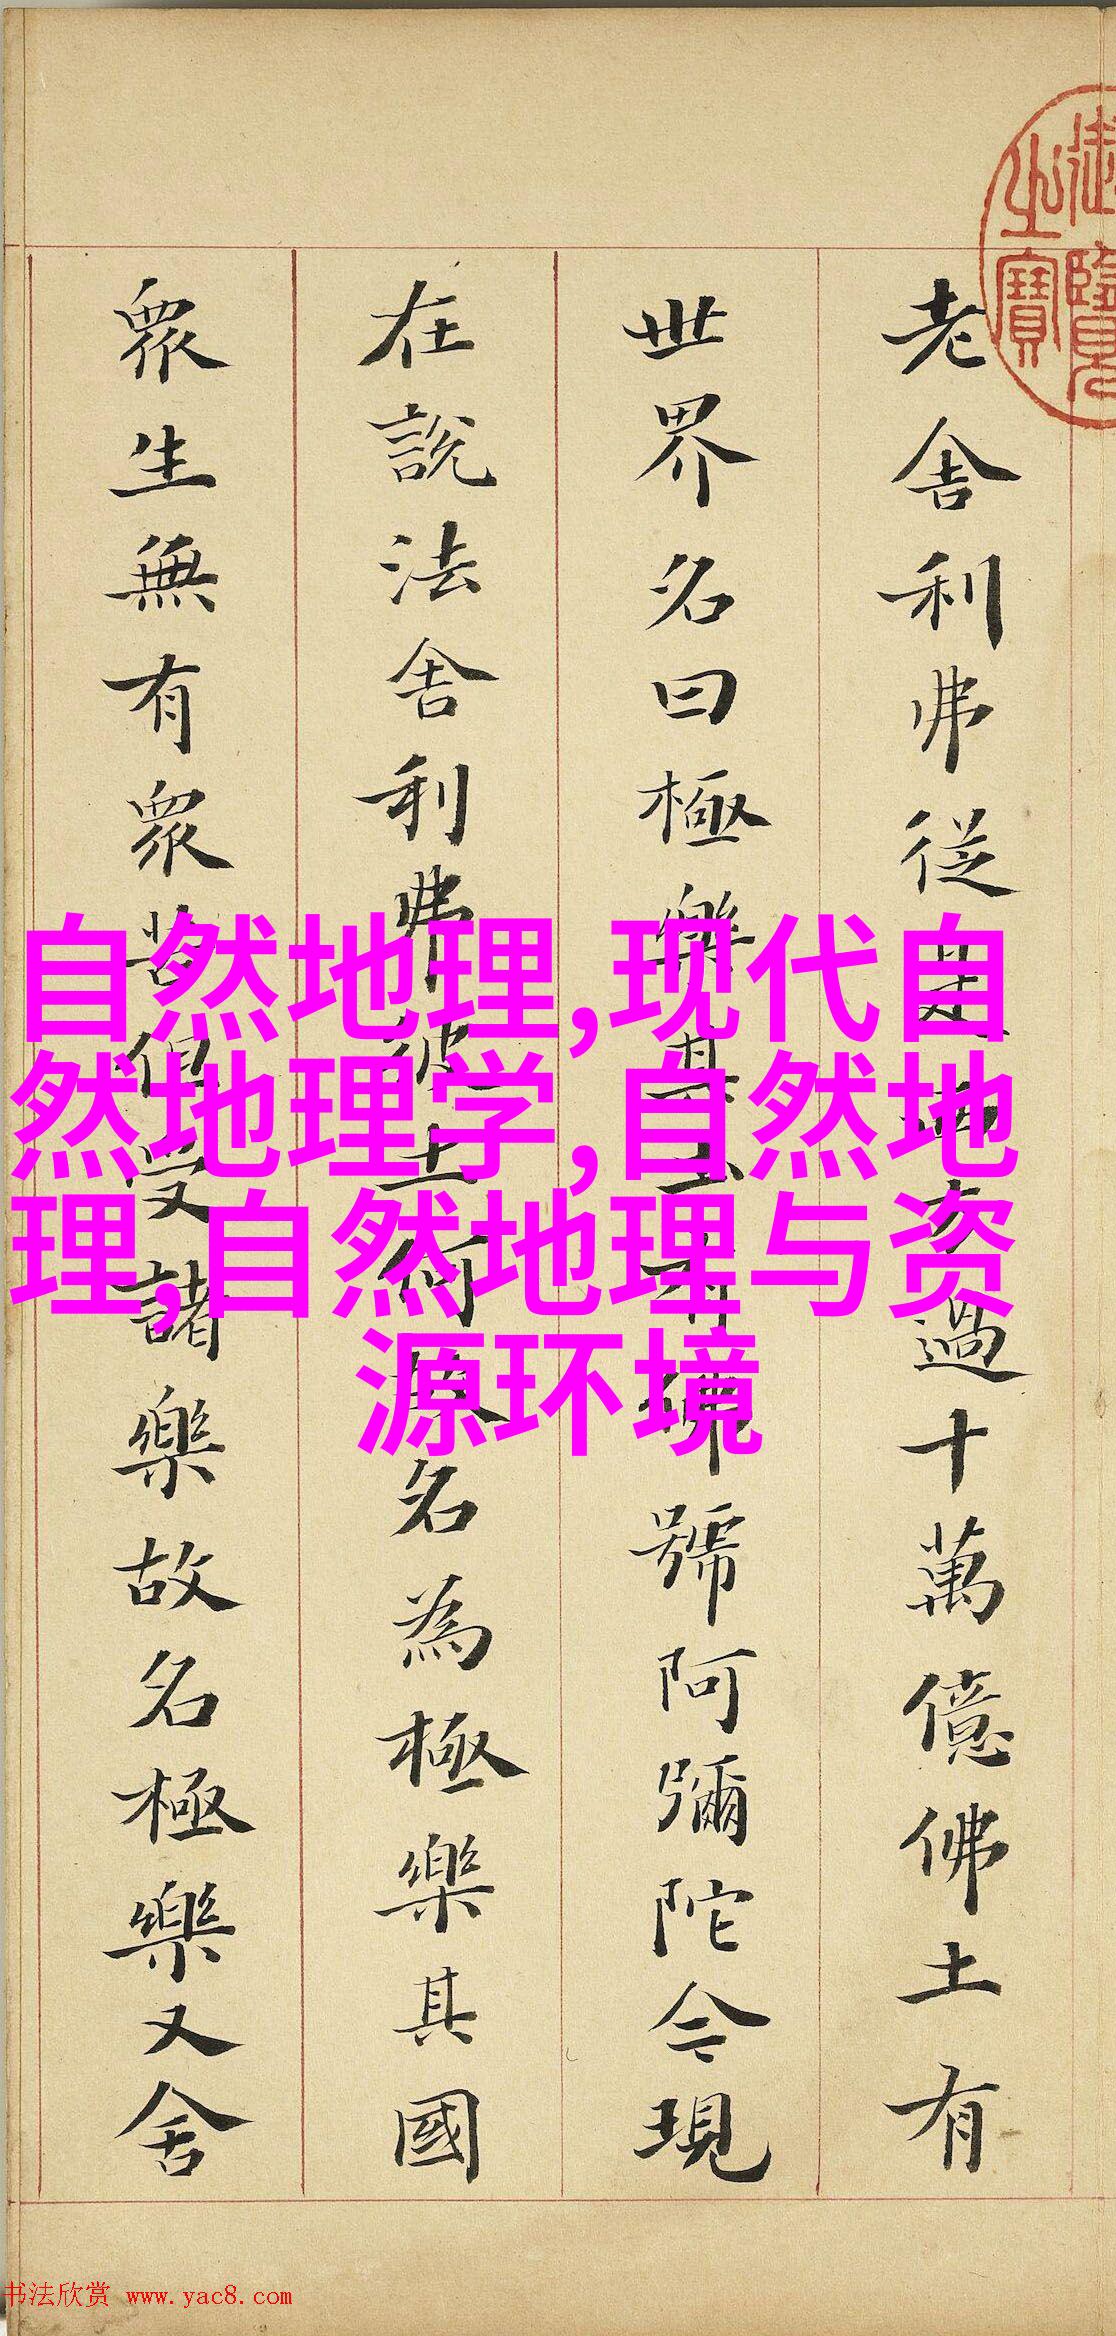 老舍利弗從是西方過十萬億佛土有
世界名曰極樂其土有佛號阿彌陀今現
在說法舍利弗彼土何故名為極樂其國
眾生無有眾苦但受諸樂故名極樂又舍
御覽
之寶
自然地理,现代自
然地理学,自然地
理,自然地理与资
源环境
书法欣赏 www.yac8.com